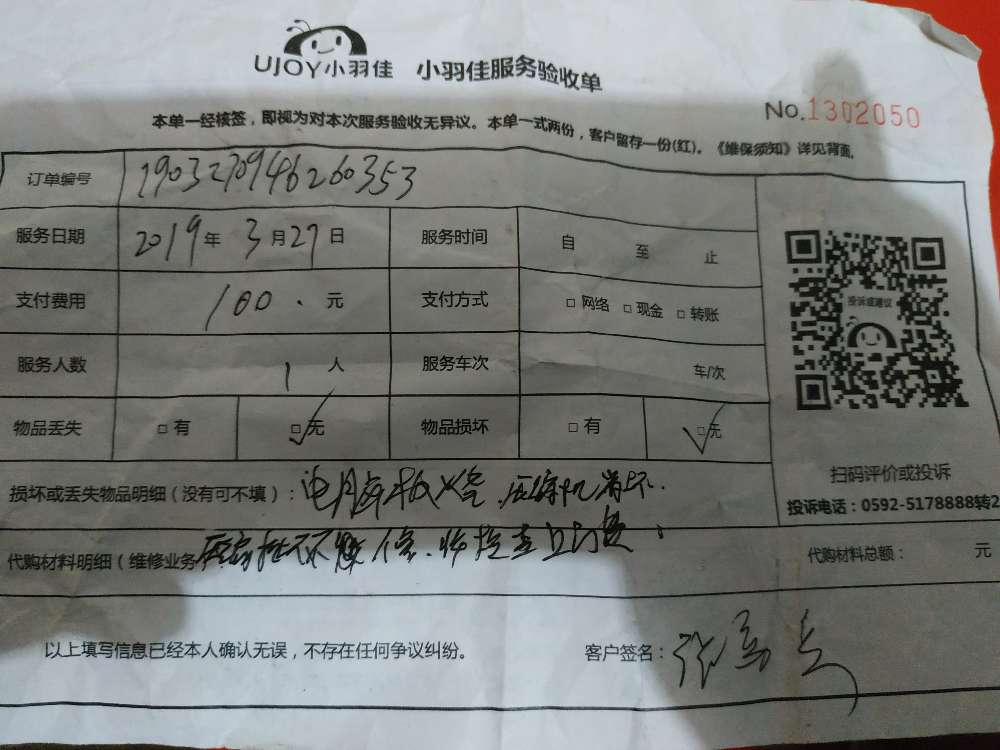 UJOY小羽佳 小羽佳服务验收单
No.1302050
本单一经核签，即视为对本次服务验收无异议。本单一式两份，客户留存一份(红)。《维保须知》详见背面。
订单编号 190327094626 0353
服务日期 2019年3月27日 服务时间 自 至 止
支付费用 100.元 支付方式 □网络 □现金 □转账
投诉或建议
服务人数 1人 服务车次 车/次
物品丢失 □有 □无 物品损坏 □有 □无
扫码评价或投诉
损坏或丢失物品明细（没有可不填）：电脑板 压缩机
投诉电话：0592-5178888转2
代购材料明细（维修业务 代购材料总额： 元
以上填写信息已经本人确认无误，不存在任何争议纠纷。 客户签名：张